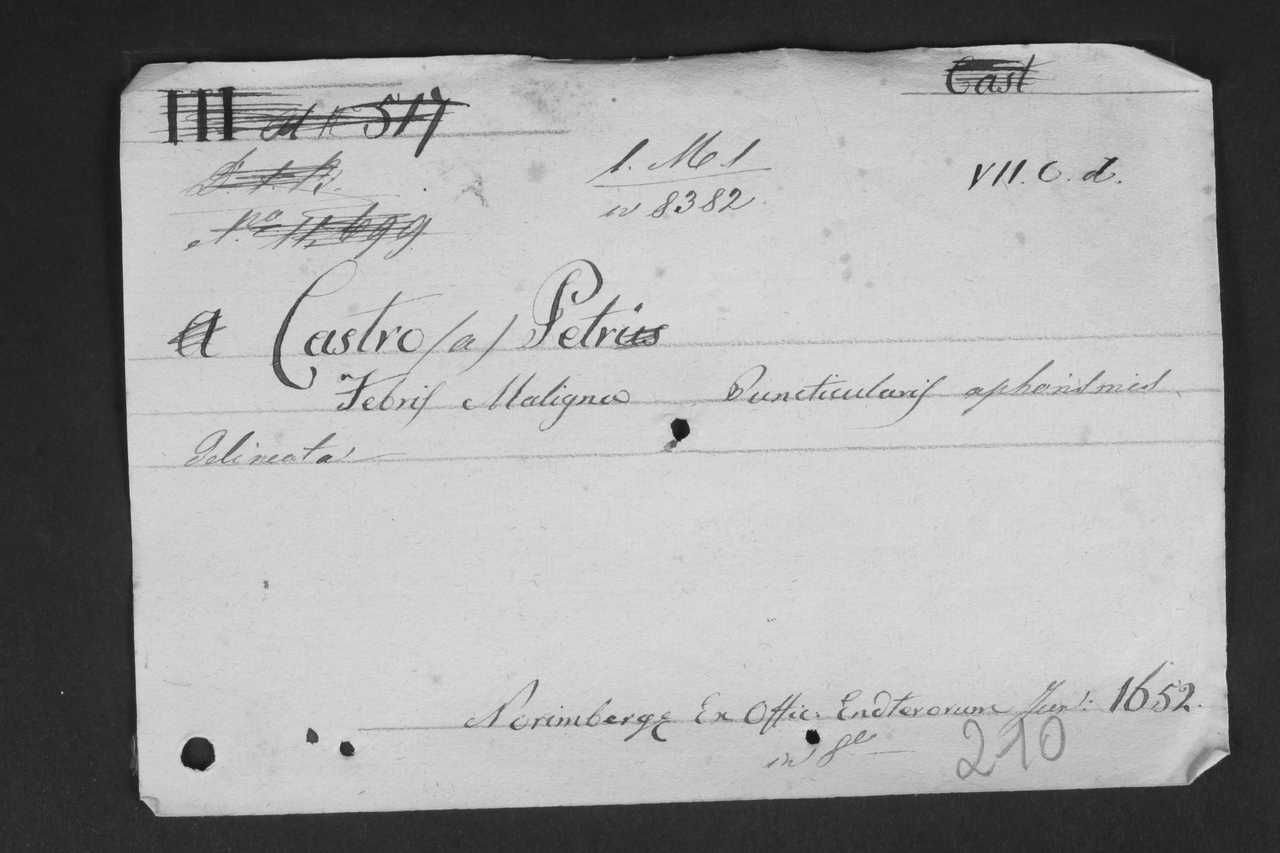 III ad No 517
Cast
D. 1. R.
1. M 1
VII. C. d.
in 8382
No 11,699
A Castro (a) Petrus
Febris Maligna Puncticularis aphorismis
delineata
Norimbergę Ex Offic. Endterorum Jun: 1652.
in 8e
210